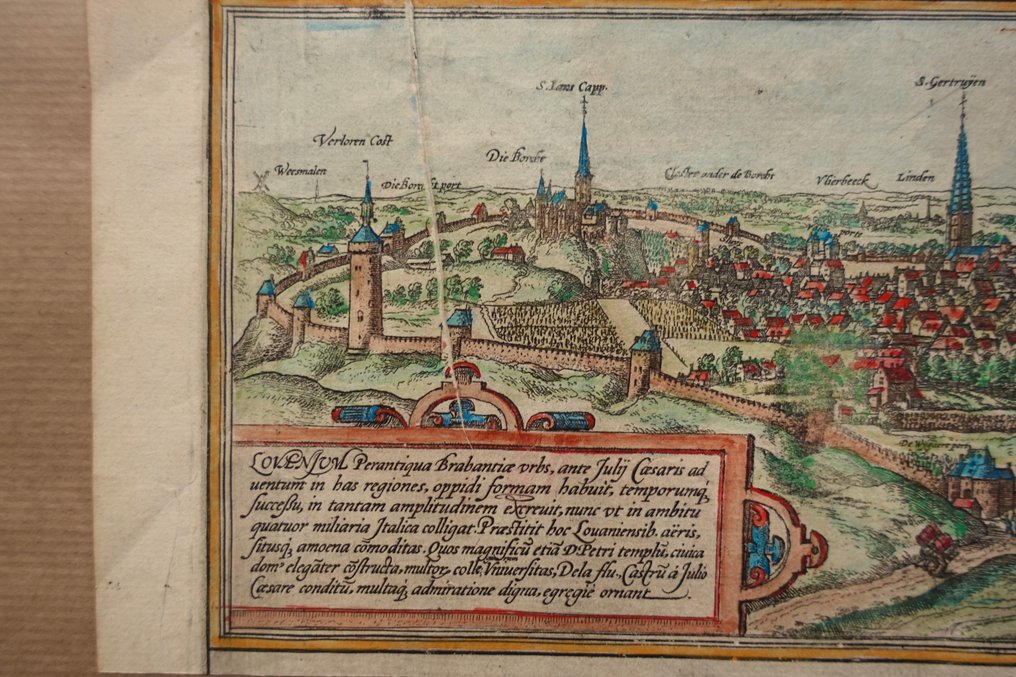 S. Jans Capp.
S. Gertruÿen
Verloren Cost
Die Borcht
Weesmalen
Die Borcht port
Closter onder de Borcht
Vlierbeeck
Linden
LOVENIVM Perantiqua Brabantiæ vrbs, ante Julij Cæsaris ad
uentum in has regiones, oppidi formam habuit, temporumq,
successu, in tantam amplitudinem excreuit, nunc vt in ambitu
quatuor miliaria Italica colligat. Præstitit hoc Louaniensib. aëris,
situsq, amoena cōmoditas. Quos magnificū etiā D. Petri templū, ciuica
dom' elegāter cōstructa, multor, colle. Vniuersitas, Dela flu., Castrū à Julio
Cæsare conditū, multaq, admiratione digna, egregie ornant